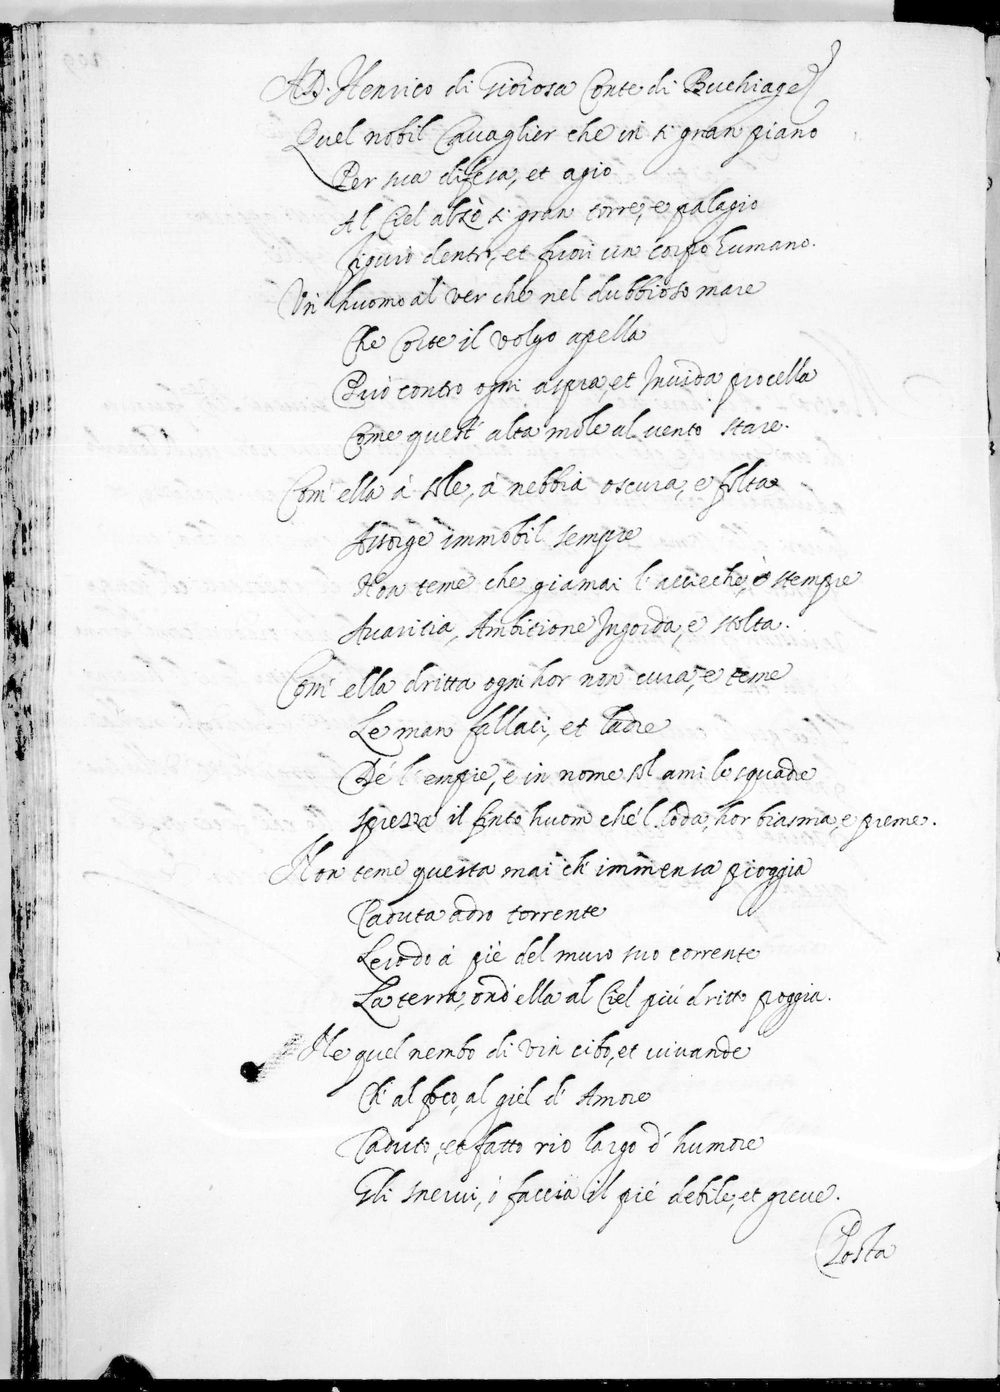 A D. Henrico di Gioiosa Conte di Buchiage
Quel nobil Cavaglier che in sì gran piano
Per sua difesa, et agio
Al Ciel alzò sì gran torre, e palagio
Figurò dentr', et fuori un corpo humano.
Un huomo al ver che nel dubbioso mare
Che Corte il volgo apella
Può contro ogni aspra, et Invida procella
Come quest' alta mole al vento stare.
Com' ella à sole, à nebbia oscura, e folta
Assorge immobil sempre
Non teme che giamai l'accieche, ò stempre
Avaritia, Ambitione Ingorda, e stolta.
Com' ella dritta ogni hor non cura, e teme
Le man fallaci, et ladre
De l'empie, e in nome sol ami le squadre
Sprezza il finto huom che'l loda, hor biasma, e preme.
Non teme questa mai ch' immensa pioggia
Caduta adro torrente
Le rodo à piè del muro suo corrente
La terra, ond' ella al Ciel più dritto poggia.
Ne quel nembo di vin cibo, et vivande
Ch' al foco, al giel d' Amore
Caduto, et fatto rio largo d' humore
Gli snervi, ò faccia il piè debile, et greve.
Posta